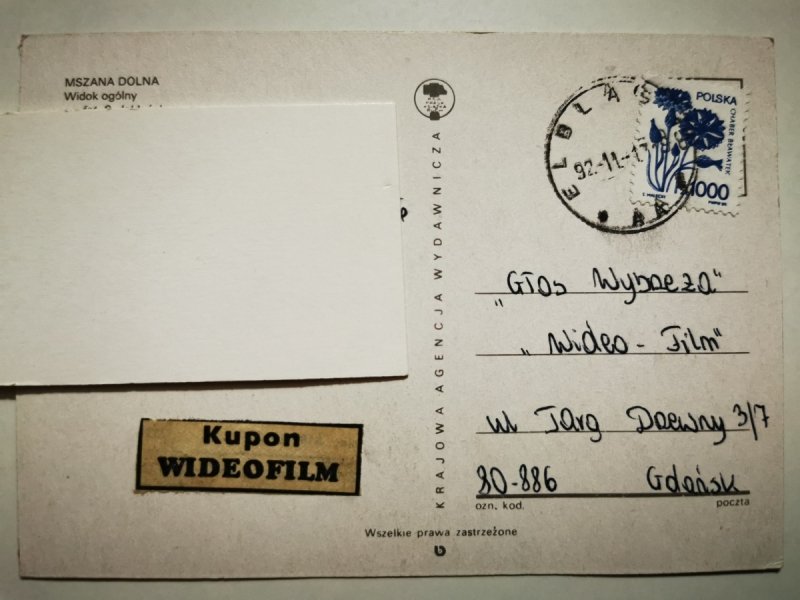 MSZANA DOLNA
Widok ogólny
KRAJOWA AGENCJA WYDAWNICZA
ELBLĄG
92-11-17
POLSKA
CHABER BŁAWATEK
1000
„Głos Wybrzeża"
„Wideo - Film"
ul Targ Drzewny 3/7
80-886 Gdańsk
ozn. kod. poczta
Kupon
WIDEOFILM
Wszelkie prawa zastrzeżone